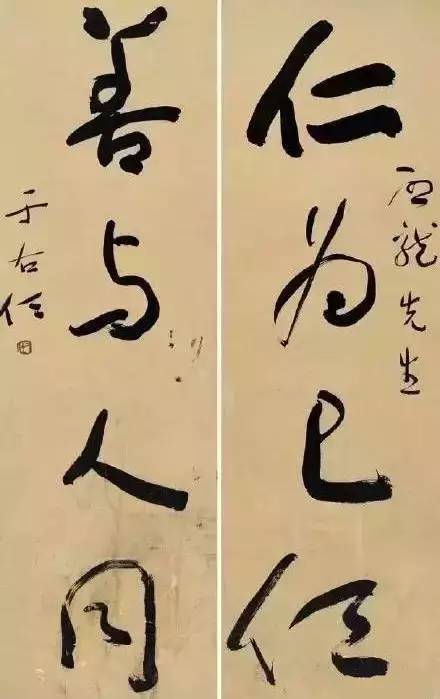 龍先生
仁为己任
善与人同
于右任